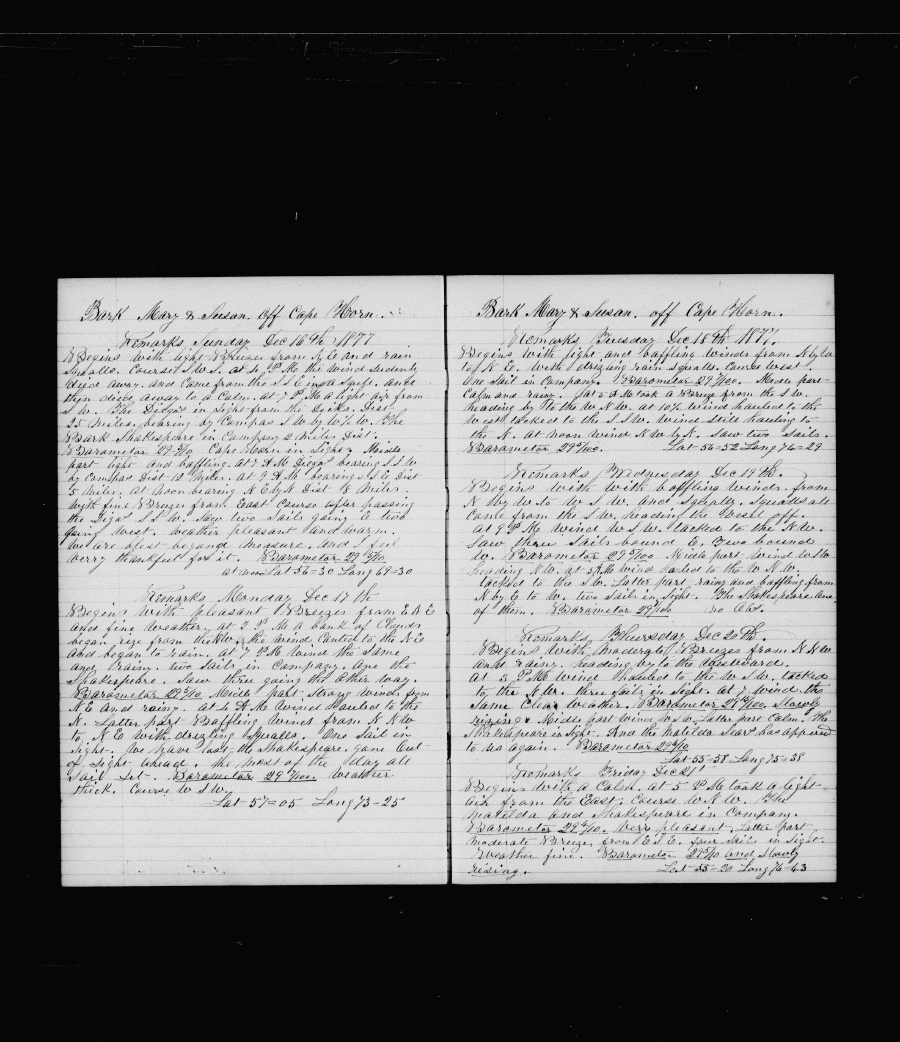 Bark Mary & Susan. Off Cape Horn.
Remarks Sunday Dec 16th 1877
Begins with light Breezes from N E and rain
Squalls. Course S W S. at 4 P M the wind sudently
died away. and Came from the S S E
then died away to a Calm. at 7 P M a light air from
S W. The Diegos in sight from the Decks. Dist.
25 Miles. bearing by Compas S W by W ½ W. The
Bark Shakespeare in Company 2 Miles Dist.
Barometor Cape Horn in Sight. Middle
part light and baffling. At 7 A M Diegos bearing S S W
by Compas Dist 12 Miles. At 9 A M bearing S S E Dist
5 Miles. at Noon bearing N E by N Dist 8 Miles.
with fine Breezes from East Course after passing
the Diegos S S W. Saw two Sails going E two
going West. Weather pleasant and warm.
We are blest beyond Measure. And I feel
verry thankfull for it. Barometor
at noon Lat 56=30 Long 69=30
Remarks Monday Dec 17th
Begins with pleasant Breezes from E N E
and fine weather. at 2 P M a bank of Clouds
began rize from the NW. the Wind Canted to the N E
And began to rain. At 7 P M Wind the same
and rainy. two Sails in Company. One the
Shakespeare. Saw three going the Other way.
Barometor Middle part Strong winds from
N E and rainy. at 4 A M Wind hauled to the
N. Latter part Baffling winds from N N W
to N E with drizling Squalls. One Sail in
Sight. We have lost the Shakespeare. gone Out
of Sight ahead. the Most of the day all
Sail Set. Barometor Weather
thick. Course W S W.
Lat 57=05 Long 73=25
Bark Mary & Susan. off Cape Horn.
Remarks Tuesday Dec 18th 1877.
Begins with light and baffling winds from N by W
to N E. with drizling rain squalls. Course West.
One Sail in Company. Barometor Middle part
Calm and rainy. at A M took a Breeze from the S W.
heading by to the W N W. at 10½ wind hauled to the
West tacked to the S S W. Wind still hauling to
the N. at noon Wind N W by N. Saw two Sails.
Barometor Lat 56=52 Long 74=29
Remarks Wednesday Dec 19th.
Begins with with baffling winds from
N by W to W S W. And Squaly. Squalls all
Came from the S W. heading the Vesel off.
at 9 P M Wind W S W. tacked to the N W.
Saw three Sails bound E. Two bound
W. Barometor Middle part Wind W S W
heading N W. at A M wind hauled to the W N W.
tacked to the S W. Latter part rainy and baffling from
N by E to W. two Sails in sight. The Shakespeare one
of them. Barometor no Obs.
Remarks Thursday Dec 20th.
Begins with moderate Breezes from N N W
and rainy. heading by to the Westward.
at 3 P M wind hauled to the W S W. tacked
to the N W. three Sails in Sight. at 7 wind the
same Clear weather. Barometor Slowly
rizing. Middle part wind W S W. Latter part Calm. The
Shakespeare in sight. And the Matilda Sears has appeared
to us again. Barometor
Lat 55=58 Long 75=38
Remarks Friday Dec 21st
Begins with a Calm. at 5 P M took a light
air from the East. Course W N W. The
Matilda and Shakespeare in Company.
Barometor Very pleasant. Latter part
Moderate Breezes from E S E. four Sails in Sight.
Weather fine. Barometor and Slowly
rising. Lat 55=20 Long 76=43